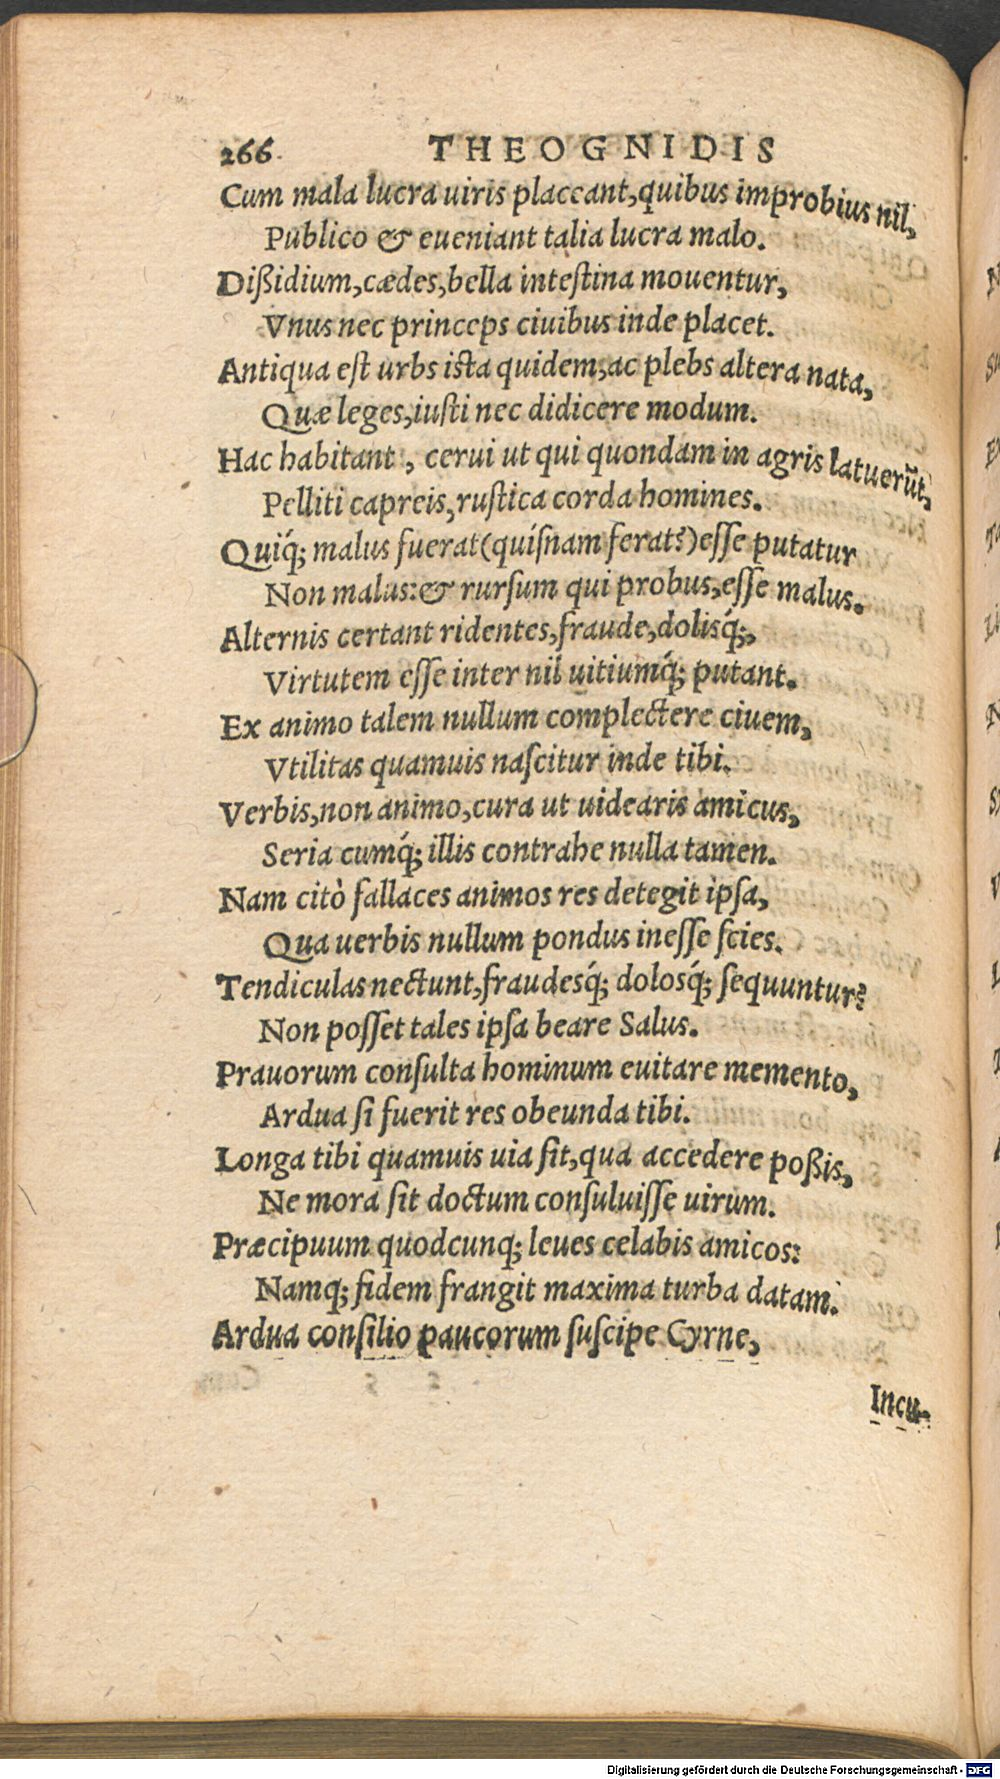 266 THEOGNIDIS
Cum mala lucra uiris placeant, quibus improbius nil,
Publico & eueniant talia lucra malo.
Dißidium, cædes, bella inteſtina mouentur,
Vnus nec princeps ciuibus inde placet.
Antiqua eſt urbs iſta quidem, ac plebs altera nata,
Quæ leges, iuſti nec didicere modum.
Hac habitant, cerui ut qui quondam in agris latuerūt,
Pelliti capreis, ruſtica corda homines.
Quiq́; malus fuerat (quiſnam ferat?) eſſe putatur
Non malus: & rurſum qui probus, eſſe malus.
Alternis certant ridentes, fraude, dolisq́;,
Virtutem eſſe inter nil uitiumq́; putant.
Ex animo talem nullum complectere ciuem,
Vtilitas quamuis naſcitur inde tibi.
Verbis, non animo, cura ut uidearis amicus,
Seria cumq́; illis contrahe nulla tamen.
Nam citò fallaces animos res detegit ipſa,
Qua uerbis nullum pondus ineſſe ſcies.
Tendiculas nectunt, fraudesq́; dolosq́; ſequuntur?
Non poſſet tales ipſa beare Salus.
Prauorum conſulta hominum euitare memento,
Ardua ſi fuerit res obeunda tibi.
Longa tibi quamuis uia ſit, qua accedere poßis,
Ne mora ſit doctum conſuluiſſe uirum.
Præcipuum quodcunq; leues celabis amicos:
Namq; fidem frangit maxima turba datam.
Ardua conſilio paucorum ſuſcipe Cyrne,
Incu-
Digitalisierung gefördert durch die Deutsche Forschungsgemeinschaft - DFG